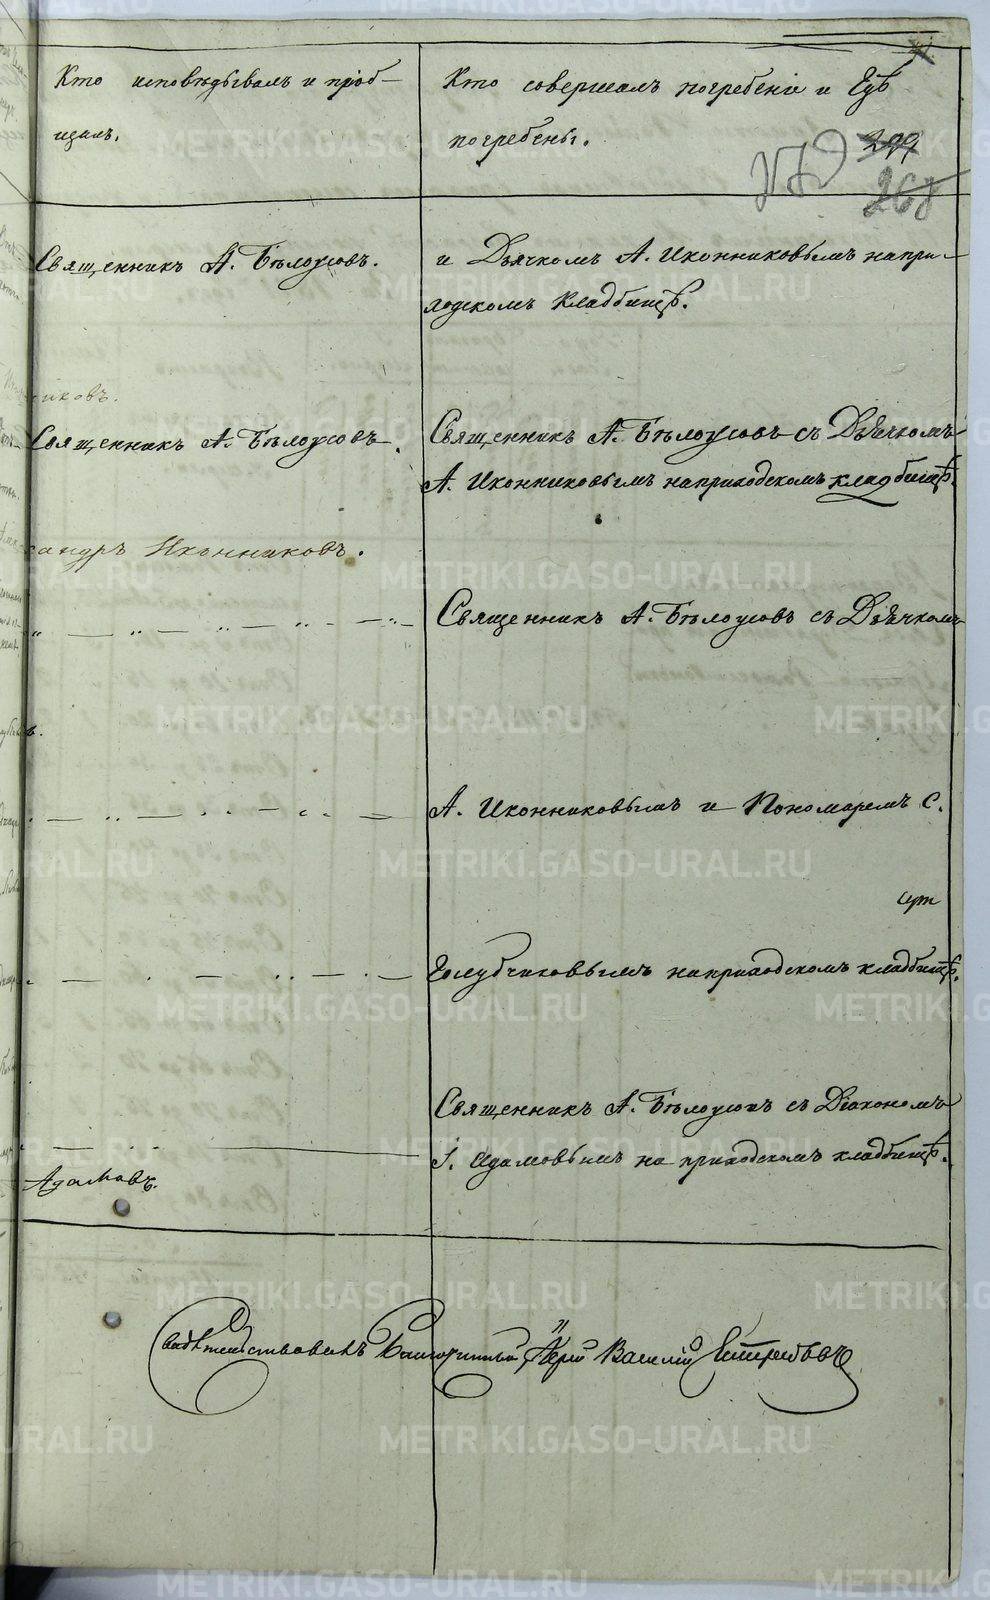 Кто исповѣдывалъ и прiоб-
щалъ.
Кто совершалъ погребенiе и гдѣ
погребены.
299
268
Священникъ А. Бѣлоусовъ.
и Дьячкомъ А. Иконниковымъ на при-
ходскомъ кладбищѣ.
Священникъ А. Бѣлоусовъ.
Священникъ А. Бѣлоусовъ съ Дьячкомъ
А. Иконниковымъ на приходскомъ кладбищѣ.
сандръ Иконниковъ.
Священникъ А. Бѣлоусовъ съ Дьячкомъ
А. Иконниковымъ и Пономаремъ С.
Голубчиковымъ на приходскомъ кладбищѣ.
Священникъ А. Бѣлоусовъ съ Дiакономъ
I. Адамовымъ на приходскомъ кладбищѣ.
Адамовъ.
Свидѣтельствовалъ Благочинный Iерей Василiй
METRIKI.GASO-URAL.RU